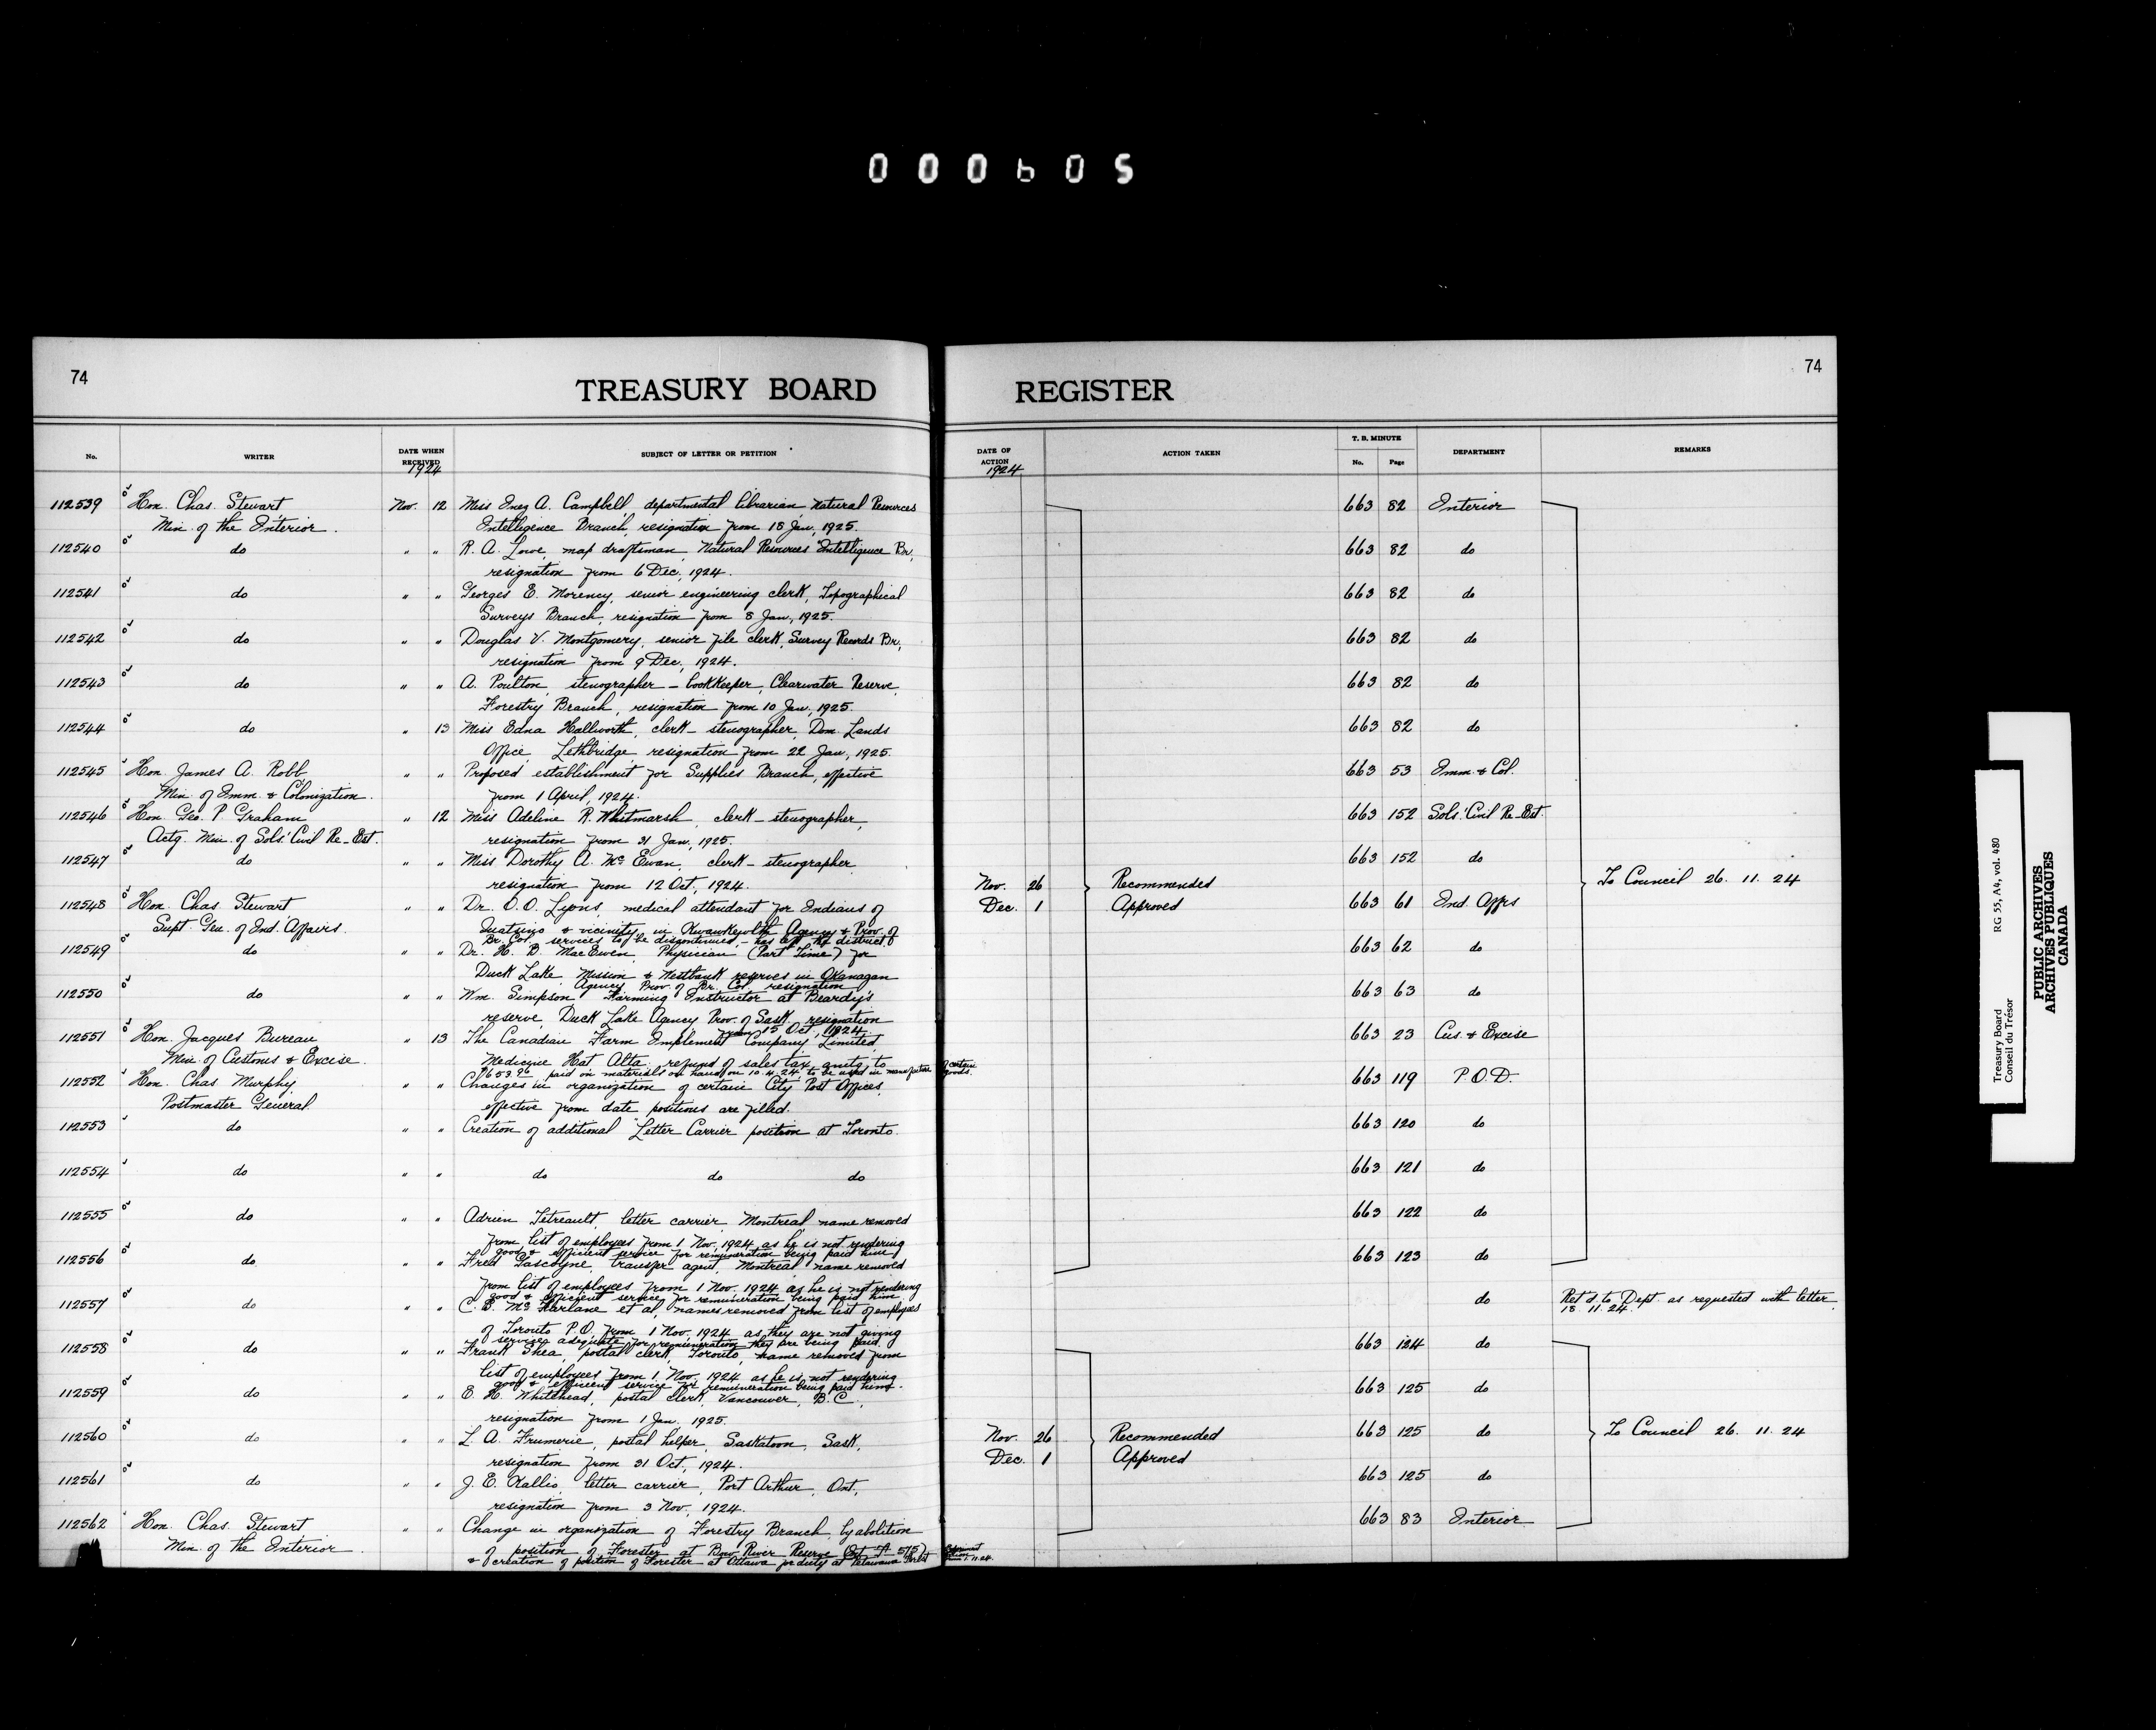 000605
74
TREASURY BOARD REGISTER
74
No.
WRITER
DATE WHEN RECEIVED
1924
SUBJECT OF LETTER OR PETITION
DATE OF ACTION
1924
ACTION TAKEN
T. B. MINUTE
No. Page
DEPARTMENT
REMARKS
112539 Hon. Chas. Stewart Nov. 12 Miss Inez A. Campbell, departmental librarian, Natural Resources 663 82 Interior
Min. of the Interior. Intelligence Branch, resignation from 18 Jan, 1925.
112540 do " " R. A. Lowe, map draftsman, Natural Resources Intelligence Br, 663 82 do
resignation from 6 Dec, 1924.
112541 do " " Georges E. Morency, senior engineering clerk, Topographical 663 82 do
Surveys Branch, resignation from 8 Jan, 1925.
112542 do " " Douglas V. Montgomery, senior file clerk, Survey Records Br, 663 82 do
resignation from 9 Dec, 1924.
112543 do " " A. Poulton, stenographer - bookkeeper, Clearwater Reserve, 663 82 do
Forestry Branch, resignation from 10 Jan, 1925.
112544 do " 13 Miss Edna Hallworth, clerk - stenographer, Dom. Lands 663 82 do
Office, Lethbridge, resignation from 22 Jan, 1925.
112545 Hon. James A. Robb " " Proposed establishment for Supplies Branch, effective 663 53 Imm. & Col.
Min. of Imm. & Colonization. from 1 April, 1924.
112546 Hon. Geo. P. Graham " 12 Miss Adeline R. Whitmarsh, clerk - stenographer, 663 152 Sols'. Civil Re-Est.
Actg. Min. of Sols'. Civil Re-Est. resignation from 31 Jan, 1925.
112547 do " " Miss Dorothy A. McEwan, clerk - stenographer 663 152 do
resignation from 12 Oct, 1924. Nov. 26 Recommended To Council 26. 11. 24
112548 Hon. Chas. Stewart " " Dr. O. O. Lyons, medical attendant for Indians of Dec. 1 Approved 663 61 Ind. Affrs
Supt. Gen. of Ind. Affairs. Quatsino & vicinity, in Kwawkewlth Agency & Prov. of
Br. Col. services to be discontinued, - has left the district.
112549 do " " Dr. H. B. MacEwen, Physician (Part Time) for 663 62 do
Duck Lake, Mission & Westbank reserves in Okanagan
Agency Prov. of Br. Col. resignation
112550 do " " Wm. Simpson Farming Instructor at Beardy's 663 63 do
reserve, Duck Lake Agency Prov. of Sask, resignation
from 15 Oct, 1924.
112551 Hon. Jacques Bureau " 13 The Canadian Farm Implement Company Limited, 663 23 Cus. & Excise
Min. of Customs & Excise. Medicine Hat, Alta. refund of sales tax amtg. to
paid on materials on hand on 10.4.24 to be used in manufacture of certain goods.
112552 Hon. Chas. Murphy " " Changes in organization of certain City Post Offices, 663 119 P.O.D.
Postmaster General effective from date positions are filled.
112553 do " " Creation of additional Letter Carrier position at Toronto. 663 120 do
112554 do " " do do do 663 121 do
112555 do " " Adrien Tetreault, letter carrier, Montreal, name removed 663 122 do
from list of employees from 1 Nov, 1924 as he is not rendering
good & efficient service for remuneration being paid him
112556 do " " Fred Gascoyne, transfer agent, Montreal name removed 663 123 do
from list of employees from 1 Nov. 1924 as he is not rendering
good & efficient service for remuneration being paid him.
112557 do " " C. E. McFarlane et al, names removed from list of employees do Ret'd. to Dept. as requested with letter
18. 11. 24.
of Toronto P.O. from 1 Nov. 1924 as they are not giving
services adequate for remuneration they are being paid.
112558 do " " Frank Shea, postal clerk, Toronto, name removed from 663 124 do
list of employees from 1 Nov. 1924 as he is not rendering
good & efficient service for remuneration being paid him.
112559 do " " E. H. Whitehead, postal clerk, Vancouver, B.C., 663 125 do
resignation from 1 Jan. 1925.
112560 do " " L. A. Frumerie, postal helper, Saskatoon, Sask, Nov. 26 Recommended 663 125 do To Council 26. 11. 24
resignation from 31 Oct, 1924. Dec. 1 Approved
112561 do " " J. E. Kallio, letter carrier, Port Arthur, Ont, 663 125 do
resignation from 3 Nov, 1924.
112562 Hon. Chas. Stewart " " Change in organization of Forestry Branch, by abolition 663 83 Interior
Min. of the Interior of position of Forester at Bow River Reserve
& creation of position of Forester at Ottawa for duty at Petawawa Forest
Treasury Board RG 55, A4, vol. 480
Conseil du Trésor
PUBLIC ARCHIVES
ARCHIVES PUBLIQUES
CANADA